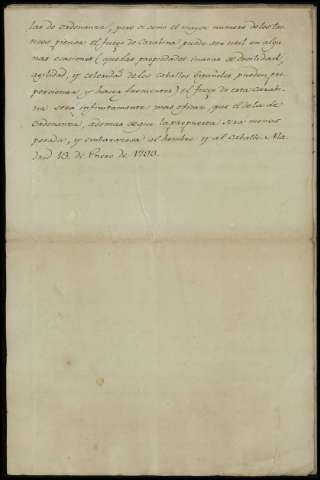 las de ordenanza, pero si como el mayor numero de los tac-
ticos, piensa el fuego de Carabina puede ser util en algu-
nas ocasiones (que las propiedades innatas de docilidad,
agilidad, y celeridad de los caballos Españoles pueden pro-
porcionar, y hacer frecuentes) el fuego de esta Carabi-
na sera infinitamente mas eficaz que el de la de
Ordenanza, ademas de que la propuesta sera menos
pesada, y embarazosa al hombre y al Caballo. Ma-
drid 13 de Enero de 1793.